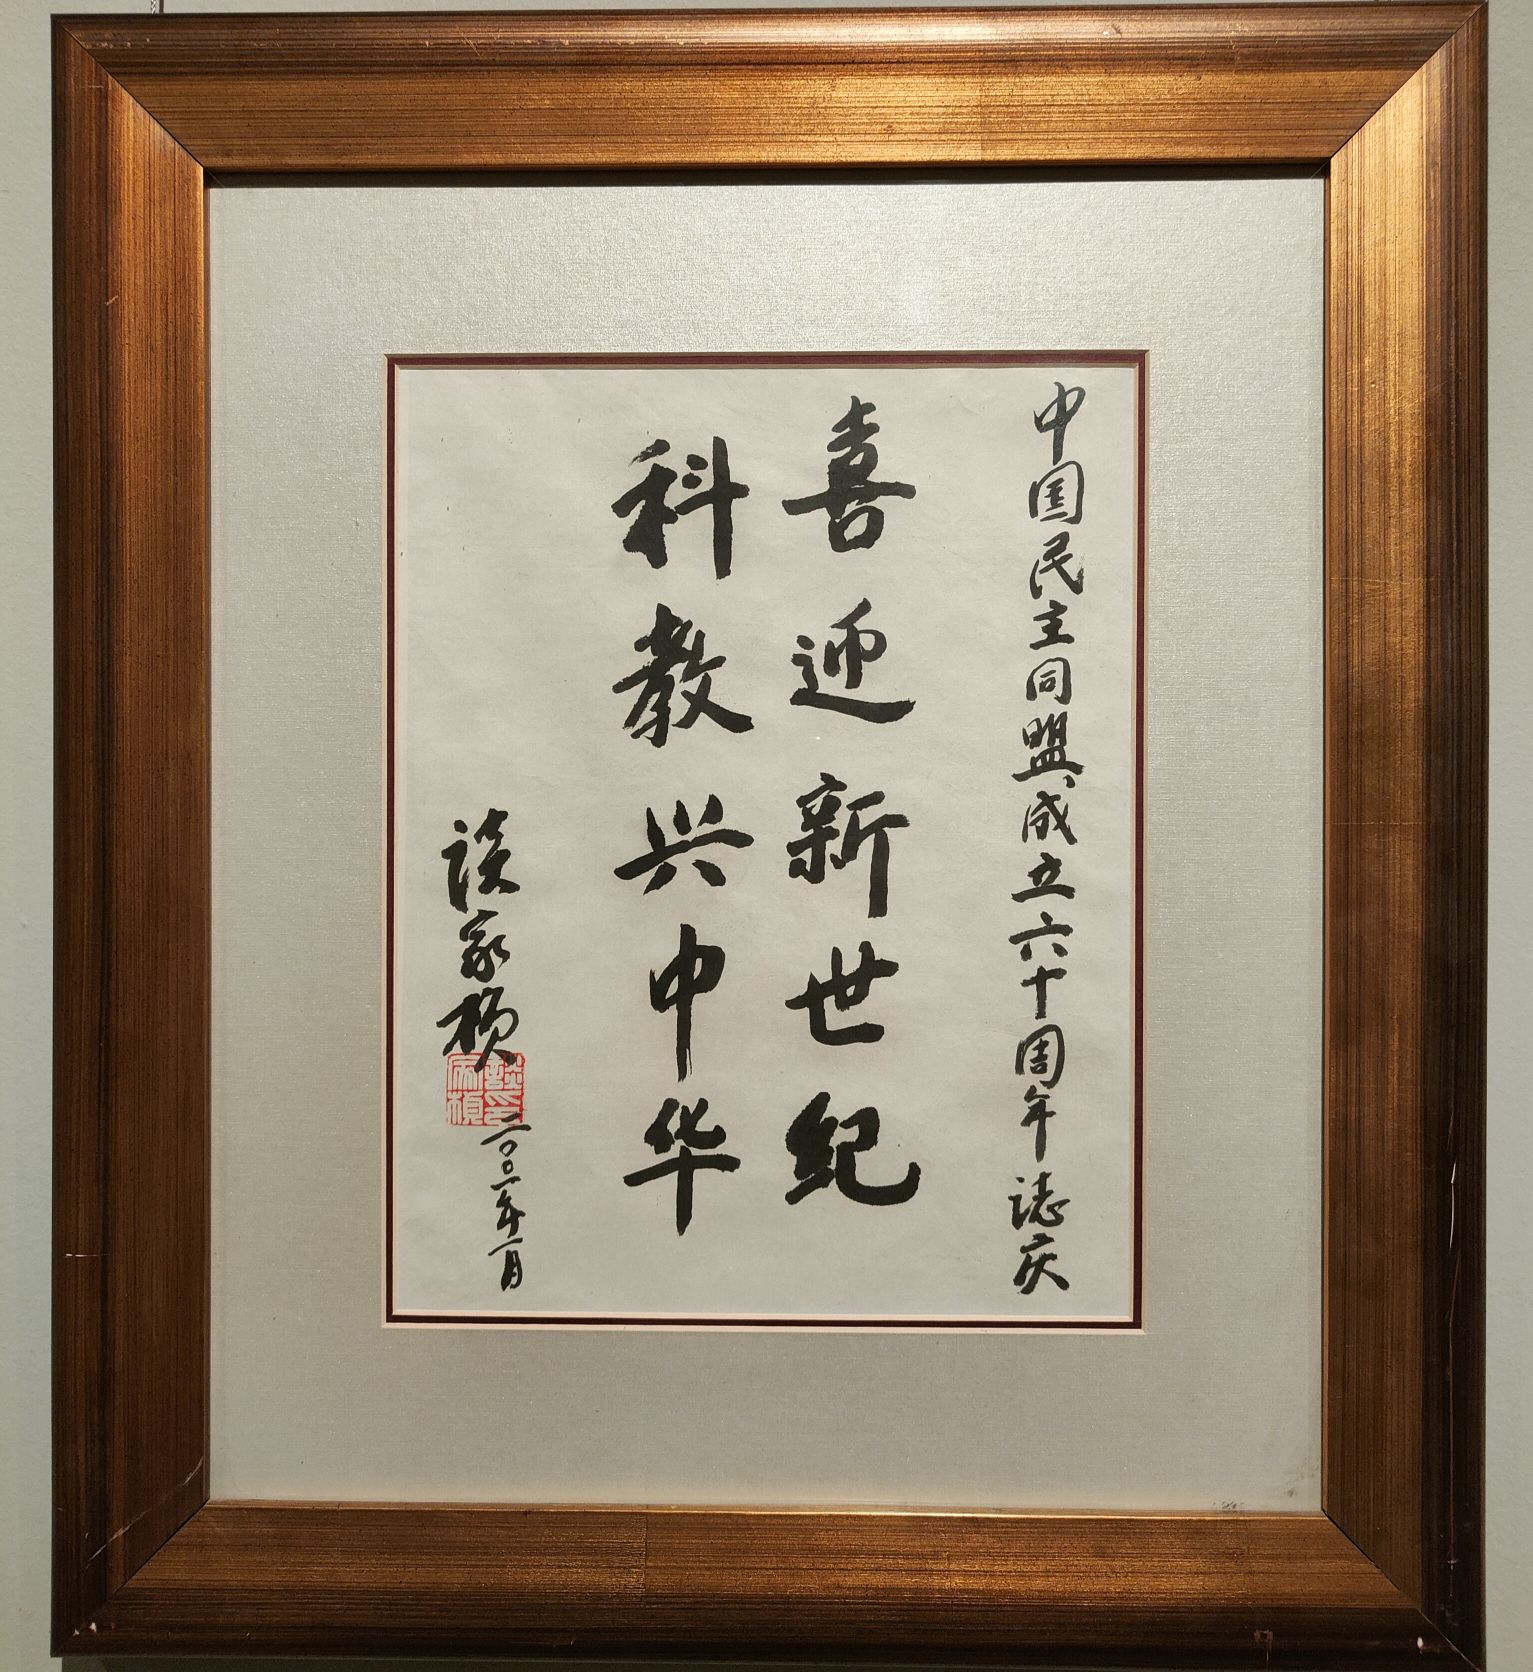 中国民主同盟成立六十周年誌庆
喜迎新世纪
科教兴中华
谈家桢
談家楨印
二〇〇一年一月